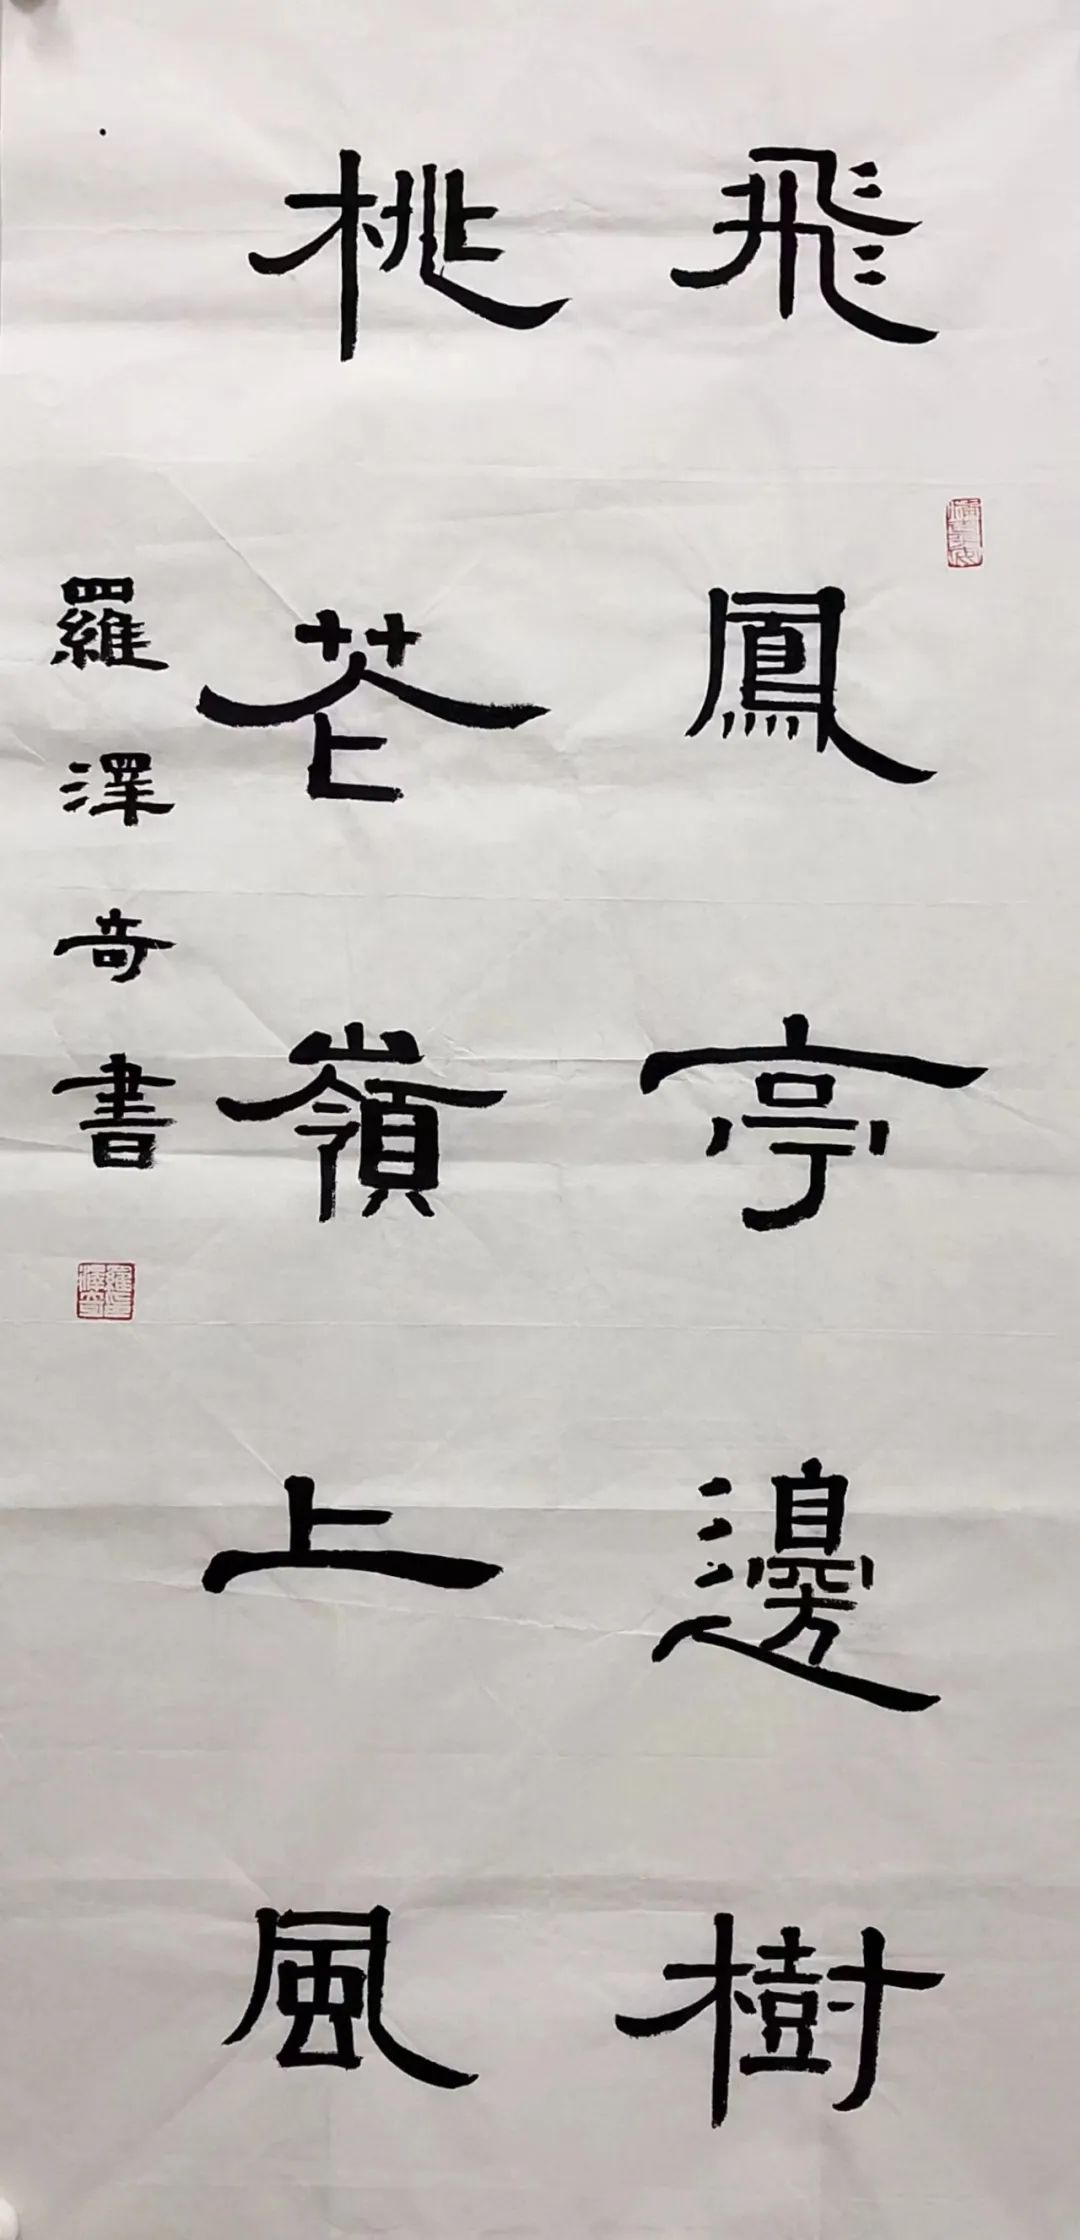 飛鳳亭邊樹
桃花嶺上風
羅澤奇書